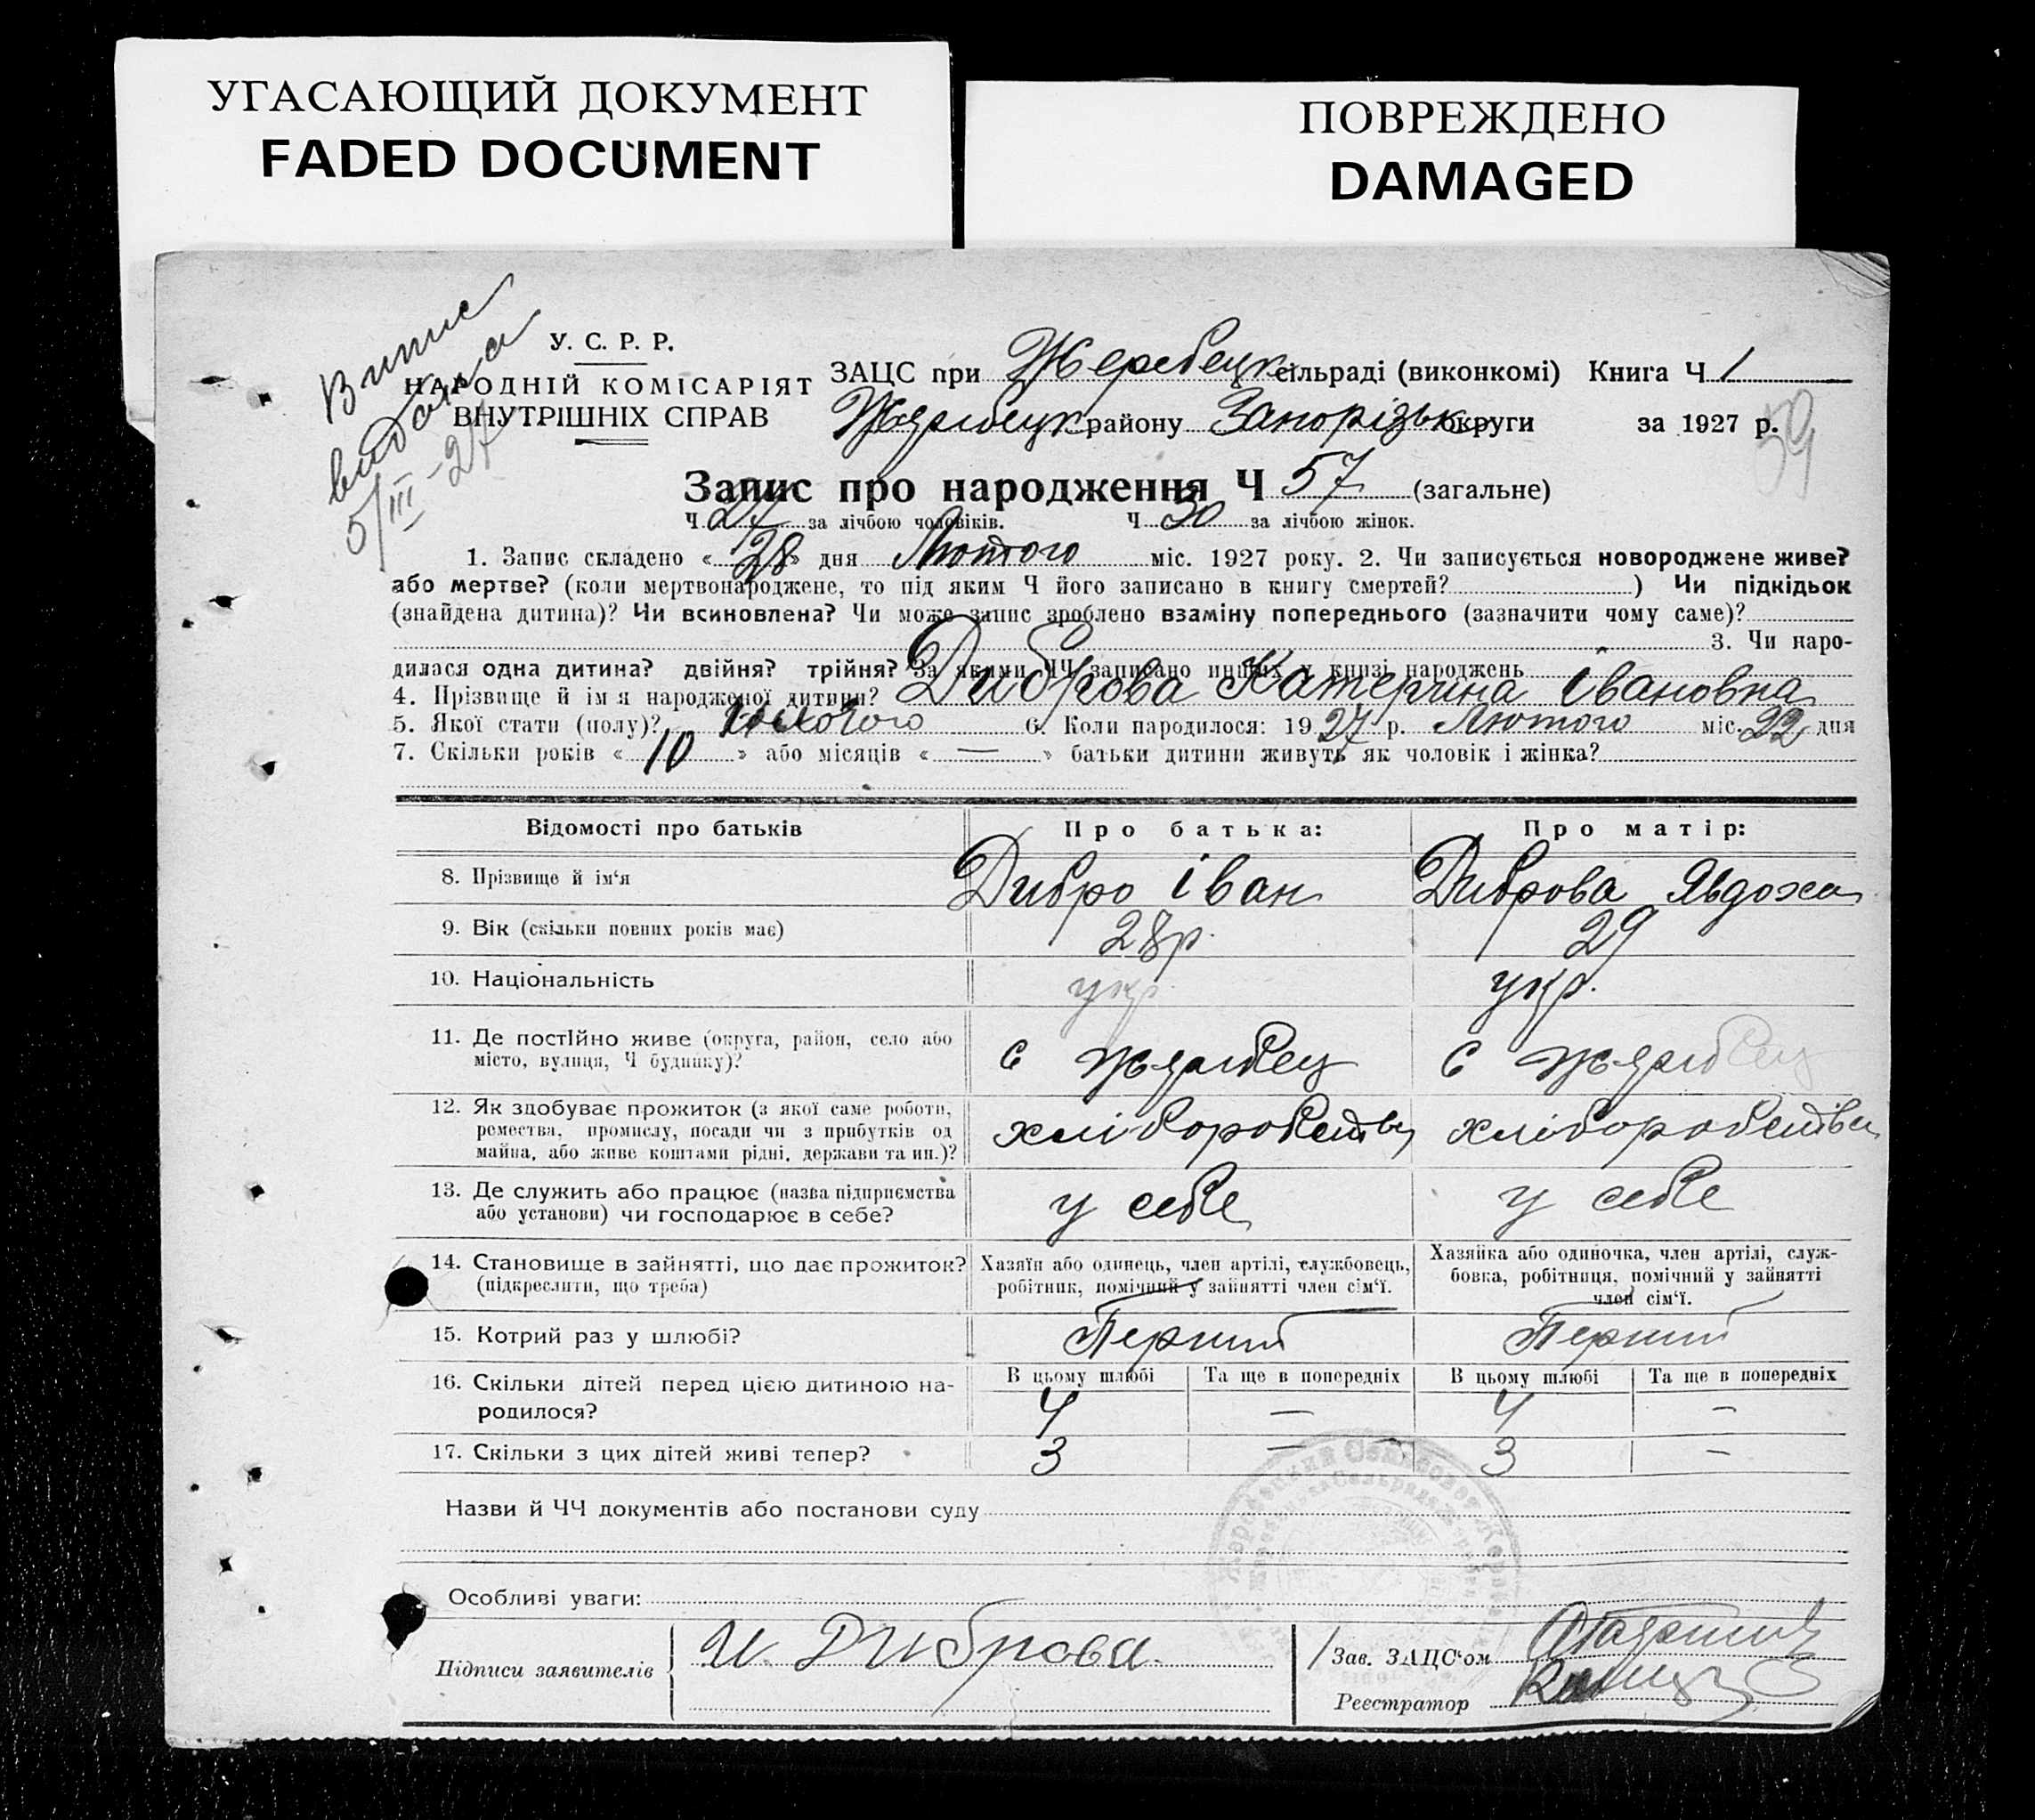 УГАСАЮЩИЙ ДОКУМЕНТ
FADED DOCUMENT
ПОВРЕЖДЕНО
DAMAGED
Випис
видана
5/III-27
У. С. Р. Р.
НАРОДНІЙ КОМІСАРІЯТ
ВНУТРІШНІХ СПРАВ
ЗАЦС при Жеребецк сільраді (виконкомі) Книга Ч 1
Жеребецк району Запорізьк округи за 1927 р.
59
Запис про народження Ч 57 (загальне)
Ч 27 за лічбою чоловіків. Ч 30 за лічбою жінок.
1. Запис складено «28» дня Лютого міс. 1927 року. 2. Чи записується новороджене живе?
або мертве? (коли мертвонароджене, то під яким Ч його записано в книгу смертей? ) Чи підкідьок
(знайдена дитина)? Чи всиновлена? Чи може запис зроблено взаміну попереднього (зазначити чому саме)?
3. Чи наро-
дилася одна дитина? двійня? трійня? За якими ЧЧ записано инших у книзі народжень
4. Прізвище й ім'я народженої дитини? Диброва Катерина Івановна
5. Якої стати (полу)? жіночого 6. Коли народилося: 1927 р. Лютого міс. 22 дня
7. Скільки років «10» або місяців « — » батьки дитини живуть як чоловік і жінка?
Відомості про батьків Про батька: Про матір:
8. Прізвище й ім'я Дибро Іван Диброва Явдоха
9. Вік (скільки повних років має) 28 р. 29
10. Національність укр. укр.
11. Де постійно живе (округа, район, село або
місто, вулиця, Ч будинку)? с Жеребец с Жеребец
12. Як здобуває прожиток (з якої саме роботи,
ремества, промислу, посади чи з прибутків од
майна, або живе коштами рідні, держави та ин.)?
13. Де служить або працює (назва підприємства
або установи) чи господарює в себе? у себе у себе
14. Становище в зайнятті, що дає прожиток?
(підкреслити, що треба)
Хазяїн або одинець, член артілі, службовець,
робітник, помічний у зайнятті член сім'ї.
Хазяйка або одиночка, член артілі, служ-
бовка, робітниця, помічний у зайнятті
член сім'ї.
15. Котрий раз у шлюбі? Перший Перший
16. Скільки дітей перед цією дитиною на-
родилося?
В цьому шлюбі Та ще в попередніх В цьому шлюбі Та ще в попередніх
4 — 4 —
17. Скільки з цих дітей живі тепер? 3 — 3 —
Назви й ЧЧ документів або постанови суду
Особливі уваги:
Підписи заявителів И. Диброва.
Зав. ЗАЦС'ом
Реєстратор